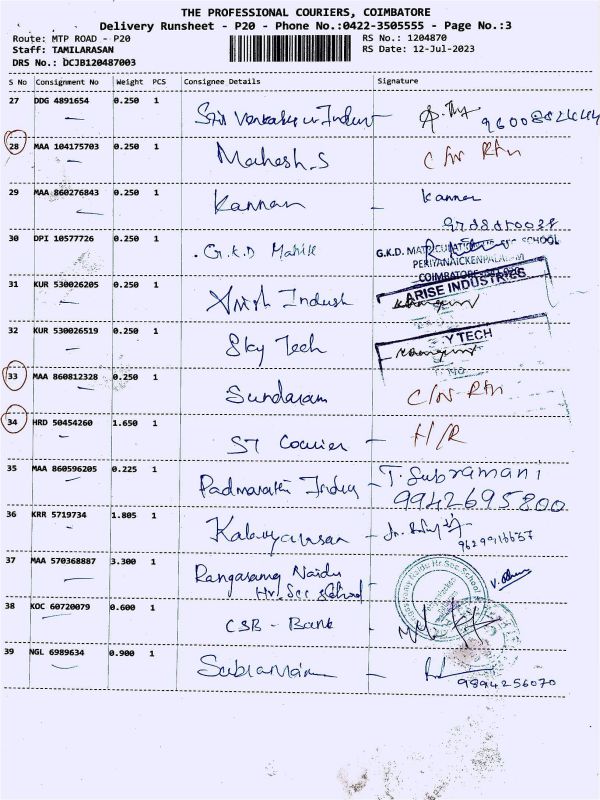 THE PROFESSIONAL COURIERS, COIMBATORE
Delivery Runsheet - P20 - Phone No.:0422-3505555 - Page No.:3
Route: MTP ROAD - P20
RS No.: 1204870
Staff: TAMILARASAN
RS Date: 12-Jul-2023
DRS No.: DCJB120487003
S No Consignment No Weight PCS Consignee Details Signature
27 DDG 4891654 0.250 1
28 MAA 104175703 0.250 1 Mahesh.S C/N Rtn
29 MAA 860276843 0.250 1 Kannan - Kannan
9788450038
30 DPI 10577726 0.250 1 G.K.D Matric
G.K.D. MATRICULATION SCHOOL
PERIYANAICKENPALAYAM
COIMBATORE
31 KUR 530026205 0.250 1 Indust
ARISE INDUSTRIES
32 KUR 530026519 0.250 1 Sky Tech
Y TECH
33 MAA 860812328 0.250 1 Sundaram C/N Rtn
34 HRD 50454260 1.650 1 ST Courier - H/R
35 MAA 860596205 0.225 1 Padmavathi Indus - T. Subramani
9942695800
36 KRR 5719734 1.805 1
37 MAA 570368887 3.300 1 Rangasamy Naidu
Hr. Sec School
38 KOC 60720079 0.600 1 CSB - Bank -
39 NGL 6989634 0.900 1 -
9894256070